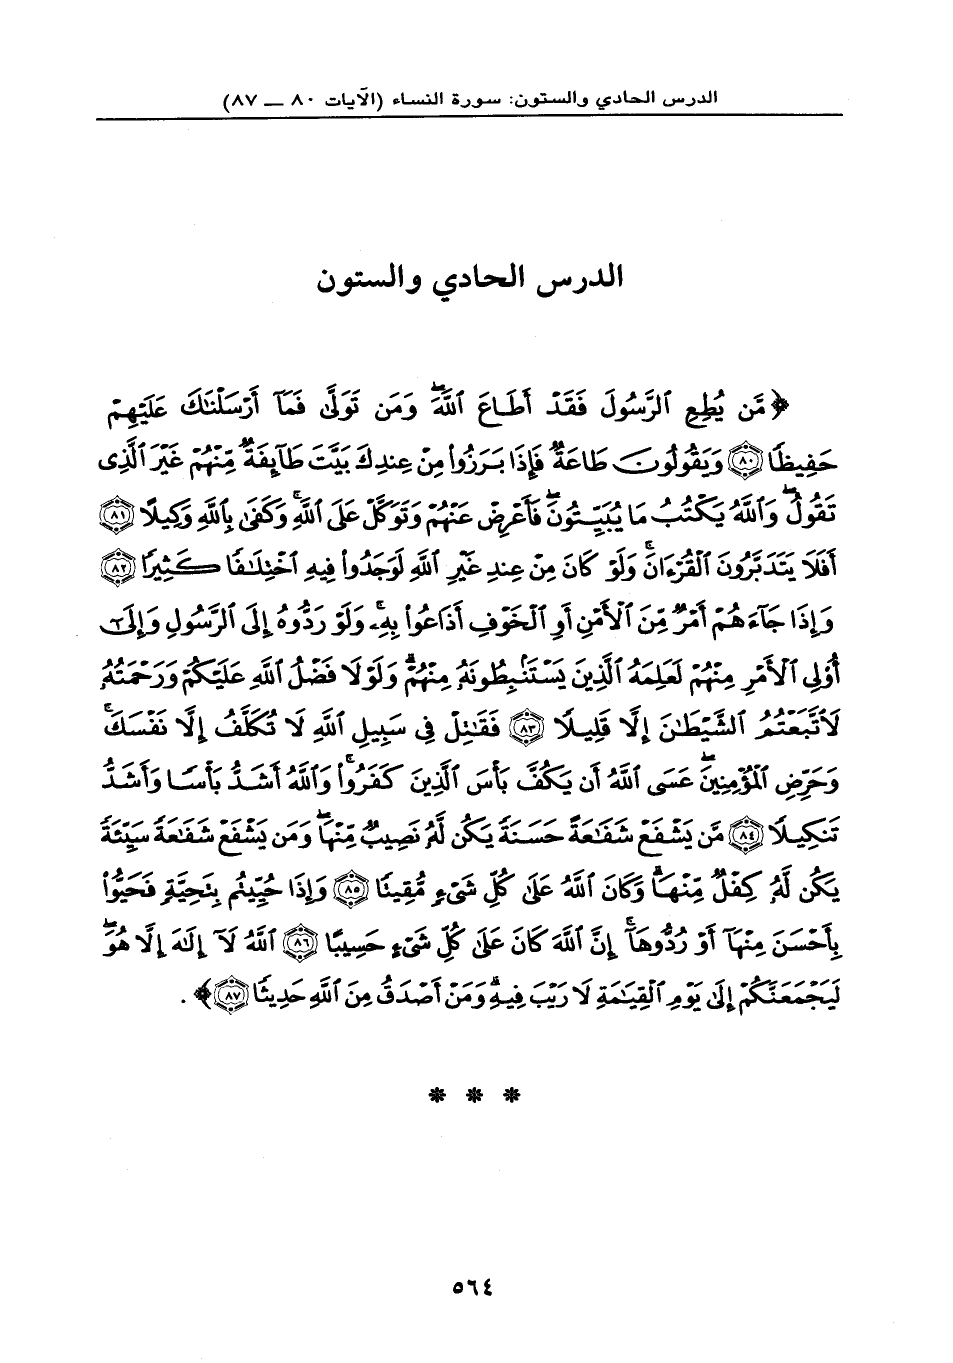 الدرس الحادي والستون: سورة النساء (الآيات ٨٠ ــ ٨٧)
الدرس الحادي والستون
﴿مَّن يُطِعِ ٱلرَّسُولَ فَقَدْ أَطَاعَ ٱللَّهَۖ وَمَن تَوَلَّىٰ فَمَآ أَرْسَلْنَٰكَ عَلَيْهِمْ
حَفِيظًا ٨٠ وَيَقُولُونَ طَاعَةٌ فَإِذَا بَرَزُواْ مِنْ عِندِكَ بَيَّتَ طَآئِفَةٌ مِّنْهُمْ غَيْرَ ٱلَّذِى
تَقُولُۖ وَٱللَّهُ يَكْتُبُ مَا يُبَيِّتُونَۖ فَأَعْرِضْ عَنْهُمْ وَتَوَكَّلْ عَلَى ٱللَّهِۚ وَكَفَىٰ بِٱللَّهِ وَكِيلًا ٨١
أَفَلَا يَتَدَبَّرُونَ ٱلْقُرْءَانَۚ وَلَوْ كَانَ مِنْ عِندِ غَيْرِ ٱللَّهِ لَوَجَدُواْ فِيهِ ٱخْتِلَٰفًا كَثِيرًا ٨٢
وَإِذَا جَآءَهُمْ أَمْرٌ مِّنَ ٱلْأَمْنِ أَوِ ٱلْخَوْفِ أَذَاعُواْ بِهِۦۖ وَلَوْ رَدُّوهُ إِلَى ٱلرَّسُولِ وَإِلَىٰٓ
أُوْلِى ٱلْأَمْرِ مِنْهُمْ لَعَلِمَهُ ٱلَّذِينَ يَسْتَنۢبِطُونَهُۥ مِنْهُمْۗ وَلَوْلَا فَضْلُ ٱللَّهِ عَلَيْكُمْ وَرَحْمَتُهُۥ
لَٱتَّبَعْتُمُ ٱلشَّيْطَٰنَ إِلَّا قَلِيلًا ٨٣ فَقَٰتِلْ فِى سَبِيلِ ٱللَّهِ لَا تُكَلَّفُ إِلَّا نَفْسَكَۚ
وَحَرِّضِ ٱلْمُؤْمِنِينَۖ عَسَى ٱللَّهُ أَن يَكُفَّ بَأْسَ ٱلَّذِينَ كَفَرُواْۚ وَٱللَّهُ أَشَدُّ بَأْسًا وَأَشَدُّ
تَنكِيلًا ٨٤ مَّن يَشْفَعْ شَفَٰعَةً حَسَنَةً يَكُن لَّهُۥ نَصِيبٌ مِّنْهَاۖ وَمَن يَشْفَعْ شَفَٰعَةً سَيِّئَةً
يَكُن لَّهُۥ كِفْلٌ مِّنْهَاۗ وَكَانَ ٱللَّهُ عَلَىٰ كُلِّ شَىْءٍ مُّقِيتًا ٨٥ وَإِذَا حُيِّيتُم بِتَحِيَّةٍ فَحَيُّواْ
بِأَحْسَنَ مِنْهَآ أَوْ رُدُّوهَآۗ إِنَّ ٱللَّهَ كَانَ عَلَىٰ كُلِّ شَىْءٍ حَسِيبًا ٨٦ ٱللَّهُ لَآ إِلَٰهَ إِلَّا هُوَۚ
لَيَجْمَعَنَّكُمْ إِلَىٰ يَوْمِ ٱلْقِيَٰمَةِ لَا رَيْبَ فِيهِۗ وَمَنْ أَصْدَقُ مِنَ ٱللَّهِ حَدِيثًا ٨٧﴾.
* * *
٥٦٤